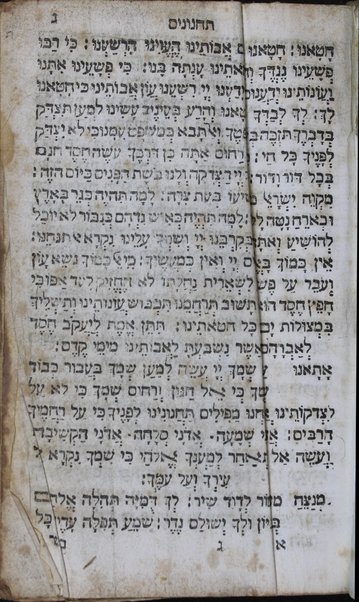 תחנונים ג
חטאנו: חטאנו אבותינו העוינו הרשענו: כי רבו
פשעינו נגדך וחטאתינו ענתה בנו: כי פשעינו אתנו
ועונותינו ידענום: ידענו יי רשענו עון אבותינו כי חטאנו
לך: לך לבדך חטאנו והרע בעיניך עשינו למען תצדק
בדבריך תזכה בשפטך: ואל תבא במשפט עמנו כי לא יצדק
לפניך כל חי: ורחום אתה כן דרכך עושה חסד חנם
בכל דור ודור: לך יי הצדקה ולנו בושת הפנים כיום הזה:
מקוה ישראל מושיעו בעת צרה: למה תהיה כגר בארץ
וכאורח נטה ללון: למה תהיה כאיש נדהם כגבור לא יוכל
להושיע ואתה בקרבנו יי ושמך עלינו נקרא אל תניחנו:
אין כמוך באלהים יי ואין כמעשיך: מי אל כמוך נושא עון
ועבר על פשע לשארית נחלתו לא החזיק לעד אפו כי
חפץ חסד הוא: תשוב תרחמנו תכבוש עונותינו ותשליך
במצולות ים כל חטאתינו: תתן אמת ליעקב חסד
לאברהם אשר נשבעת לאבותינו מימי קדם:
אתאנו על שמך יי עשה למען שמך בעבור כבוד
שמך כי אל חנון ורחום שמך כי לא על
צדקותינו אנחנו מפילים תחנונינו לפניך כי על רחמיך
הרבים: אדני שמעה אדני סלחה אדני הקשיבה
ועשה אל תאחר למענך אלהי כי שמך נקרא
עירך ועל עמך:
למנצח מזמור לדוד שיר: לך דומיה תהלה אלהים
בציון ולך ישולם נדר: שומע תפלה עדיך כל
א ג